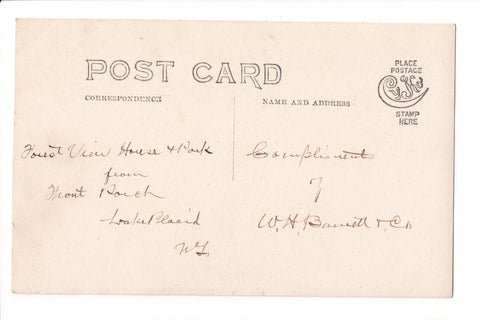 POST CARD
PLACE
POSTAGE
CyKo
STAMP
HERE
CORRESPONDENCE
NAME AND ADDRESS
Forest View House & Park
from
Front Porch
Lake Placid
N.Y.
Compliments
of
W. H. Barrett & Co